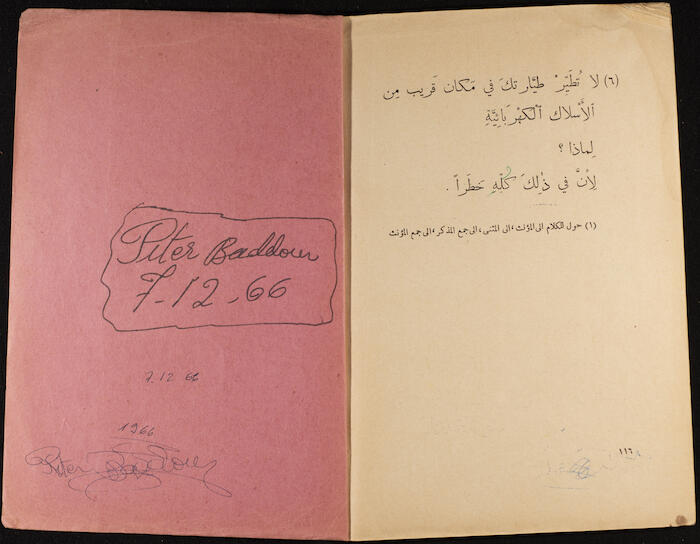 Piter Baddour
7-12-66
7.12 66
1966
Piter Baddour
(٦) لا تُطَيِّرْ طيَّارتكَ في مَكان قَريب مِن
الأَسْلاك اَلْكهْرَبائيَّةِ
لِماذا ؟
لِأنَّ في ذٰلِكَ كُلِّهِ خَطَراً .
(١) حول الكلام الى المؤنث ، الى المثنى ، الى جمع المذكر ، الى جمع المؤنث
١١٦